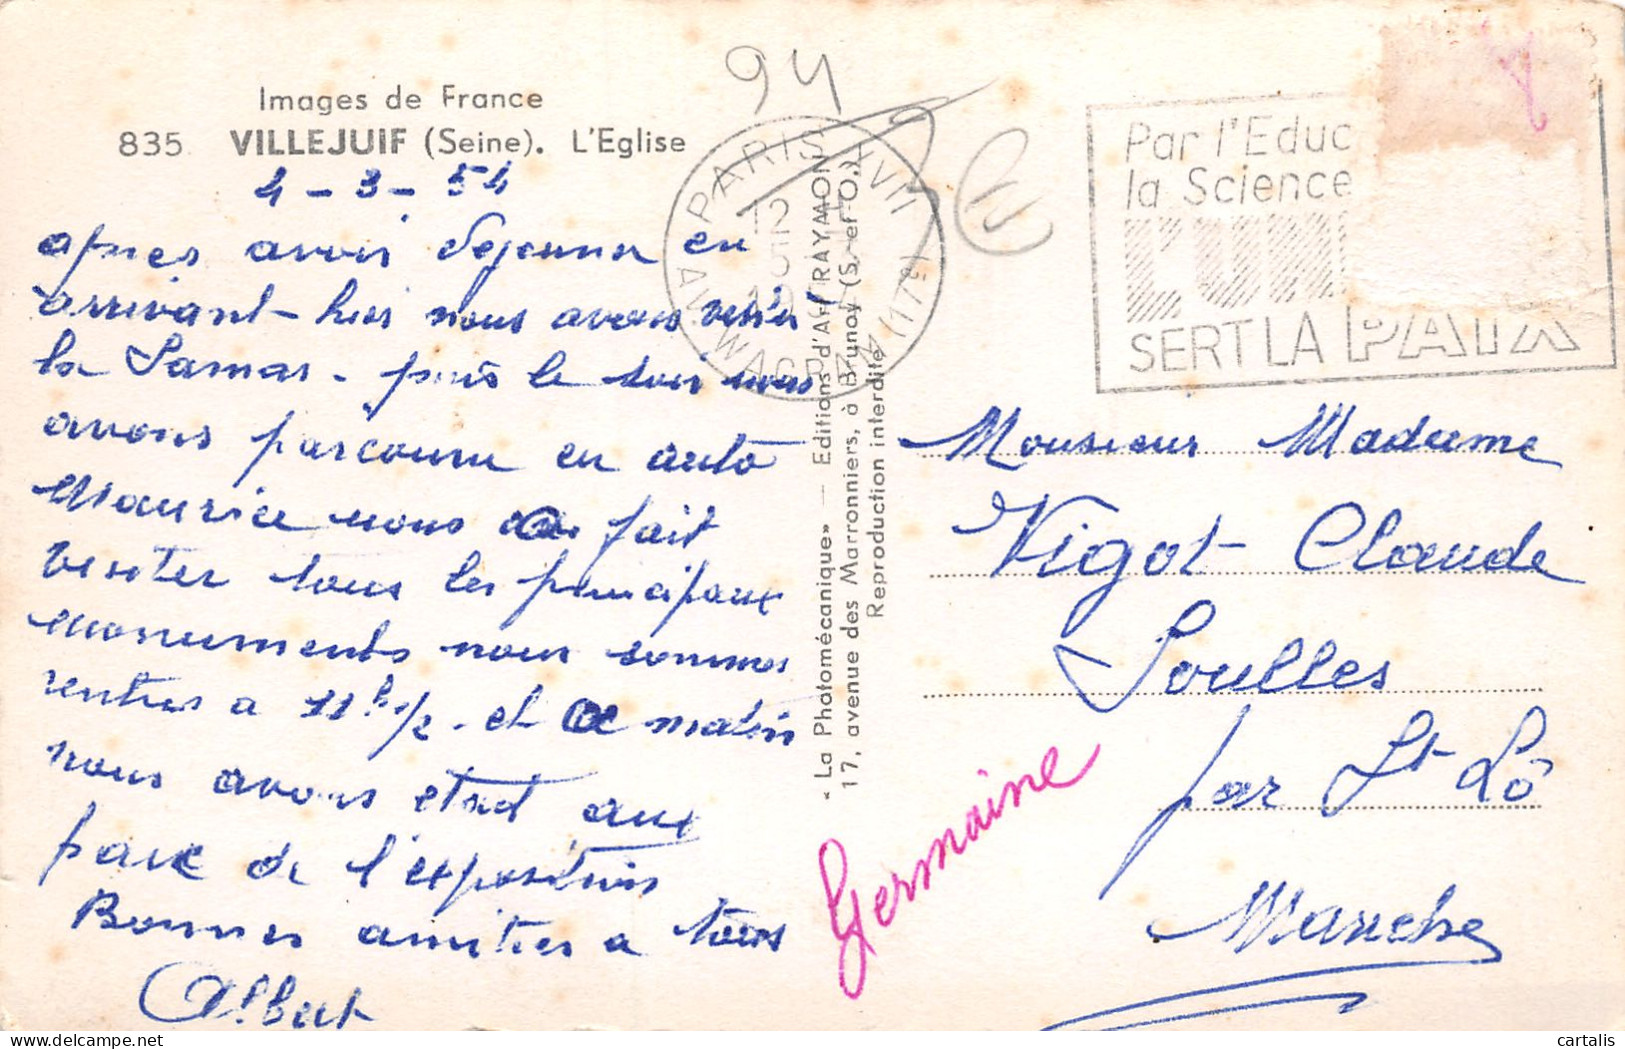 94
Images de France
835 VILLEJUIF (Seine). L'Eglise
4-3-54
après avoir dejeuner en
arrivant-hier nous avons visiter
la Samar - puis le soir nous
avons parcouru en auto
Maurice nous a fait
visiter tous les principaux
monuments nous sommes
rentres a 11h 1/2 - et ce matin
nous avons etait aux
parc de l'exposition
Bonnes amities a tous
Albert
Germaine
« La Photomécanique » — Editions d'Art RAYMON
17, avenue des Marronniers, à Brunoy (S.-et-O.)
Reproduction interdite
PARIS XVII
12
AV. WAGRAM (17E)
Par l'Educ
la Science
L'UN
SERT LA PAIX
Monsieur Madame
Vigot Claude
Soulles
par St Lô
Manche
cartalis
delcampe.net